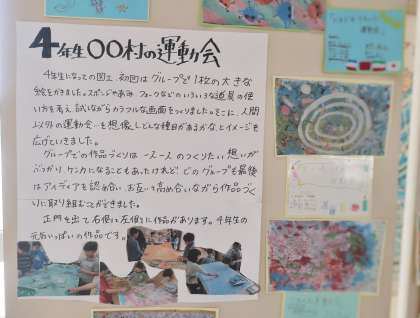 4年生〇〇村の運動会
4年生になっての図工、初回はグループで1枚の大きな
絵をかきました。スポンジやあみ、フォークなどのいろいろな道具の使
い方を考え、試しながらカラフルな画面をつくりました。そこに、人間
以外の運動会…を想像し、どんな種目があるかな、とイメージを
広げていきました。
グループでの作品づくりは一人一人のつくりたい想いが
ぶつかり、ケンカになることもあったけれど、どのグループも最後
はアイディアを認め合い、お互いを高め合いながら作品づく
りに取り組むことができました。
正門を出て右側と左側に作品があります。4年生の
元気いっぱいの作品です。